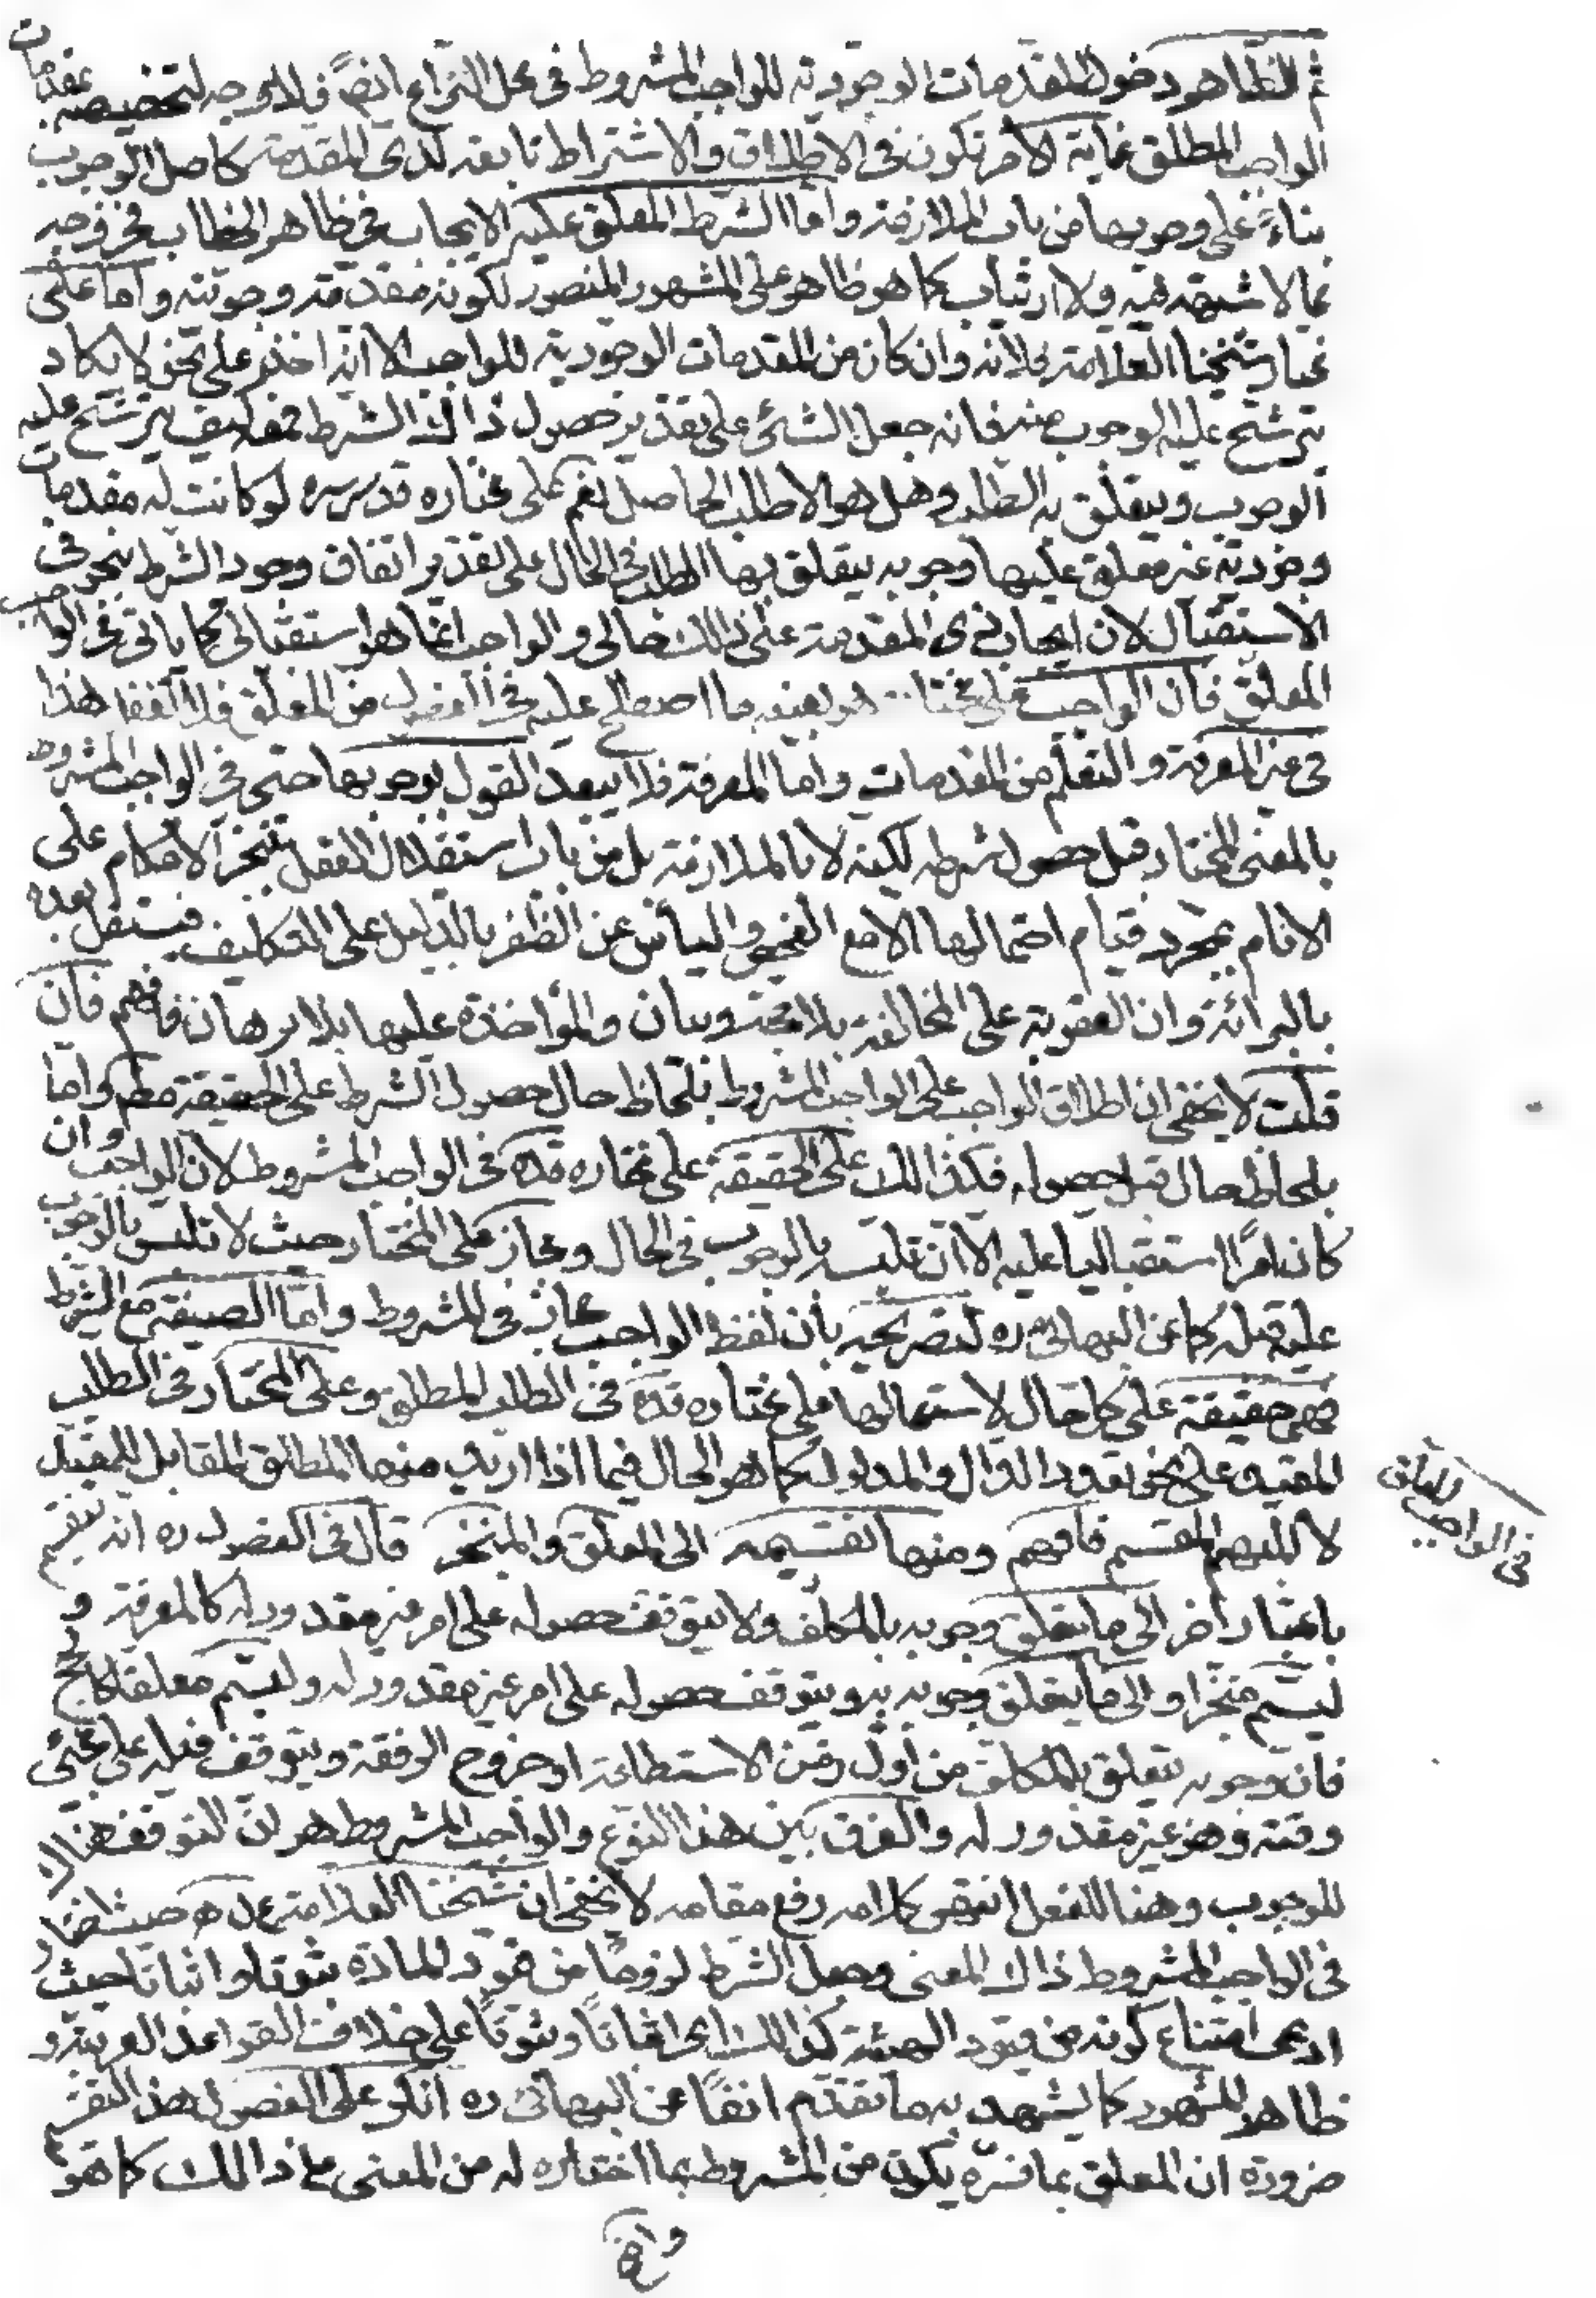 ثم الظاهر دخول المقدمات الوجودية للواجب المشروط فى محل النزاع ايضاً فلا وجه لتخصيصه بمقدمات
الواجب المطلق غاية الامر تكون فى الاطلاق والاشتراط تابعه لذى المقدمة كاصل الوجوب
بناءً على وجوبها من باب الملازمة واما الشرط المعلق عليه الايجاب فى ظاهر الخطاب فخروجه
مما لا شبهة فيه ولا ارتياب اما على ما هو ظاهر المشهور المنصور لكونه مقدمة وجوبية واما على
مختار شيخنا العلامة فلانه وان كان من المقدمات الوجودية للواجب الا انه اخذ على نحو لا يكاد
يترشح عليه الوجوب منه فانه جعل الشئ على تقدير حصول ذاك الشرط فمعه كيف يترشح عليه
الوجوب ويتعلق به الطلب وهل هو الا طلب الحاصل نعم على مختاره قدس سره لو كانت له مقدمات
وجودية غير معلق عليها وجوبه يتعلق بها الطلب فى الحال على تقدير اتفاق وجود الشرط فى
الاستقبال لان ايجاب ذى المقدمة على ذلك حالى والواجب انما هو استقبالى كما ياتى فى الواجب
المعلق فان الواجب على مختا.. هو بعينه ما اصطلح عليه فى الفصول من المعلق فلا تغفل هذا
فى غير المعرفة والتعلم من المقدمات واما المعرفة فلا يبعد القول بوجوبها حتى فى الواجب المشروط
بالمعنى المختار قبل حصول شرطه لكنه لا بالملازمة بل من باب استقلال العقل بتنجز الاحكام على
الانام بمجرد قيام احتمالها الا مع الفحص والياس عن الظفر بالدليل على التكليف فيستقل بعده
بالبرائة وان العقوبة على المخالفة بلا حجة وبيان والمؤاخذة عليها بلا برهان فافهم فان
قلت لا يخفى ان اطلاق الواجب على الواجب المشروط بلحاظ حال حصول الشرط على الحقيقة مطم واما
بلحاظ حال قبل حصوله فكذالك على الحقيقة على مختاره قده فى الواجب المشروط لان الواجب وان
كان امراً استقباليا عليه الا ان تلبسه بالوجوب فى الحال ومجاز على المختار حيث لا تلبس بالوجوب
عليه قبله كما عن البهائى ره لتصريحه بان لفظ الواجب مجاز فى المشروط واما الصيغة مع الشرط
فهى حقيقة على كل حال لاستعمالها على مختاره قده فى الطلب المطلق وعلى المختار فى الطلب
المقيد على نحو تعدد الدال والمدلول كما هو الحال فيما اذا اريد منها المطلق المقابل للمقيد
لا المبهم المقسم فافهم ومنها تقسيمه الى المعلق والمنجز قال فى الفصول ره انه ينقسم
فى الواجب المعلق
باعتبار اخر الى ما يتعلق وجوبه بالمكلف ولا يتوقف حصوله على امر غير مقدور له كالمعرفة و
ليسم منجزا والى ما يتعلق وجوبه به ويتوقف حصوله على امر غير مقدور له وليسم معلقا كالحج
فان وجوبه يتعلق بالمكلف من اول زمن الاستطاعة او خروج الرفقة ويتوقف فعله على مجئ
وقته وهو غير مقدور له والفرق بين هذا النوع والواجب المشروط هو ان التوقف هناك
للوجوب وهنا للفعل انتهى كلامه رفع مقامه لا يخفى ان شيخنا العلامة حيث اختار
فى الواجب المشروط ذاك المعنى وجعل الشرط لزوماً من قيود المادة ثبوتا واثباتا حيث
ادعى امتناع كونه من قيود الهيئة كذالك اى اثباتاً وثبوتاً على خلاف القواعد العربية و
ظاهر المشهور كما يشهد به ما تقدم انفاً عن البهائى ره انكر على الفصول هذا التقسيم
ضرورة ان المعلق بما فسره يكون من المشروط بما اختاره له من المعنى على ذالك كما هو
واضح